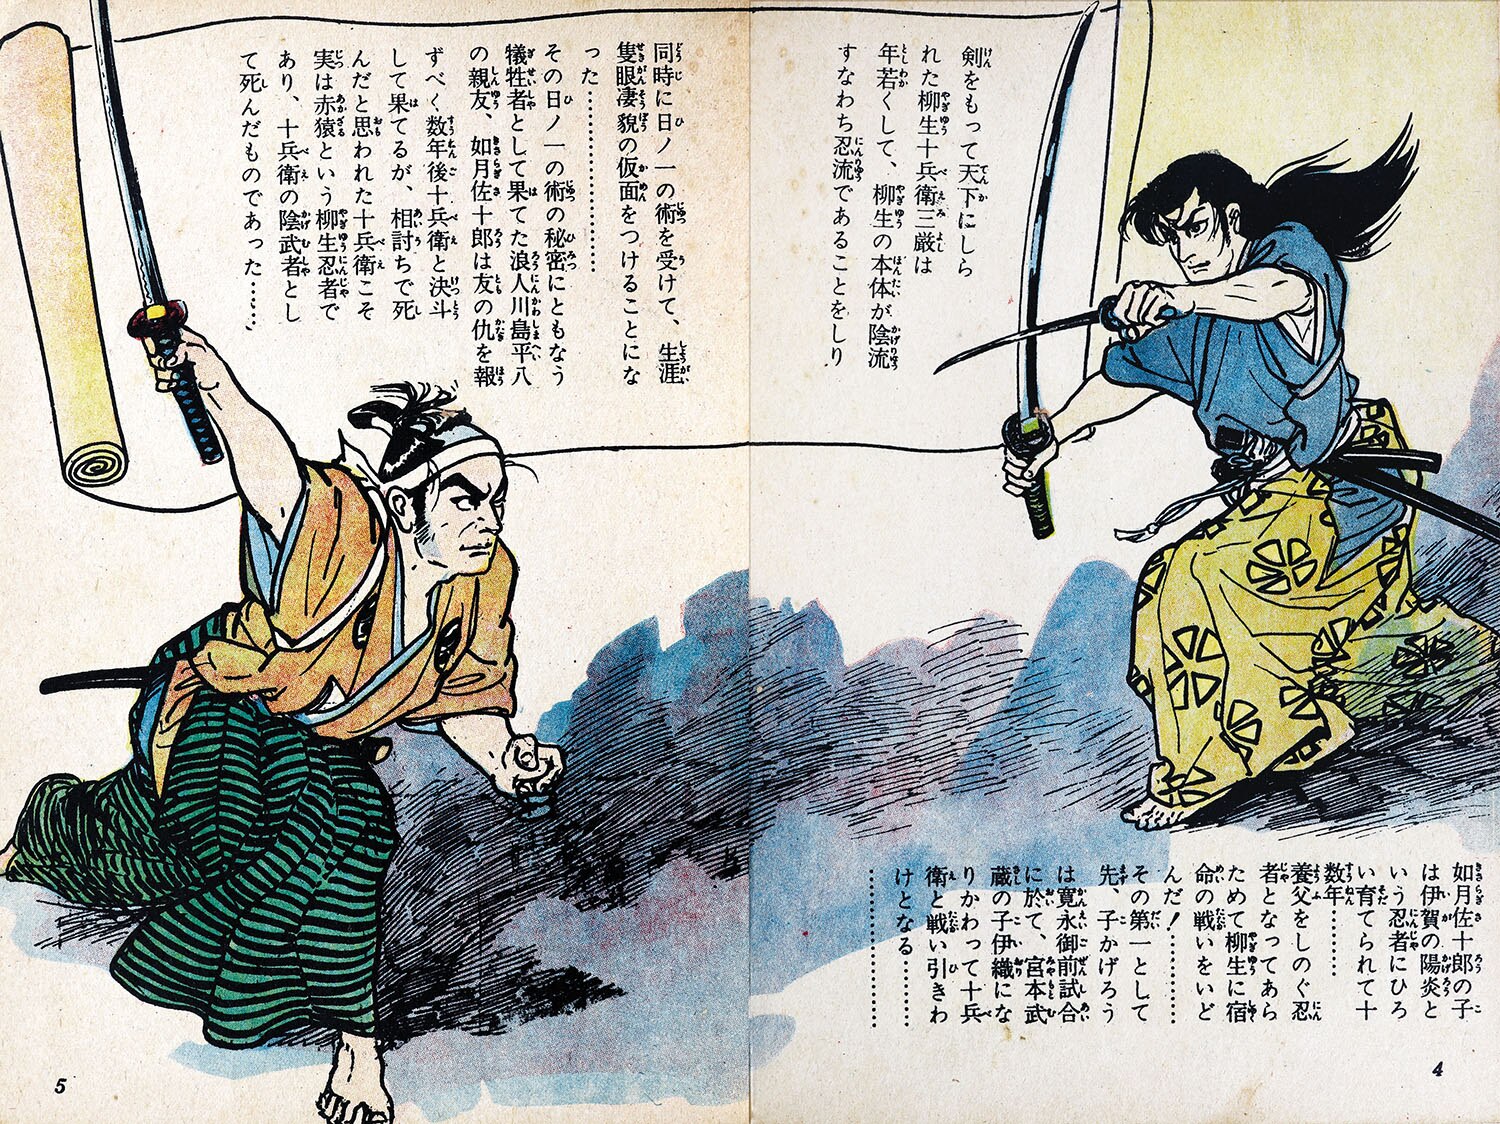 剣をもって天下にしら
れた柳生十兵衛三厳は
年若くして、柳生の本体が陰流
すなわち忍流であることをしり
同時に日ノ一の術を受けて、生涯
隻眼凄貌の仮面をつけることにな
った……………………
その日ノ一の術の秘密にともなう
犠牲者として果てた浪人川島平八
の親友、如月佐十郎は友の仇を報
ずべく、数年後十兵衛と決斗
して果てるが、相討ちで死
んだと思われた十兵衛こそ
実は赤猿という柳生忍者で
あり、十兵衛の陰武者とし
て死んだものであった……
如月佐十郎の子
は伊賀の陽炎と
いう忍者にひろ
い育てられて十
数年……………
養父をしのぐ忍
者となってあら
ためて柳生に宿
命の戦いをいど
んだ！…………
その第一として
先、子かげろう
は寛永御前試合
に於て、宮本武
蔵の子伊織にな
りかわって十兵
衛と戦い引きわ
けとなる………
……………………
4
5